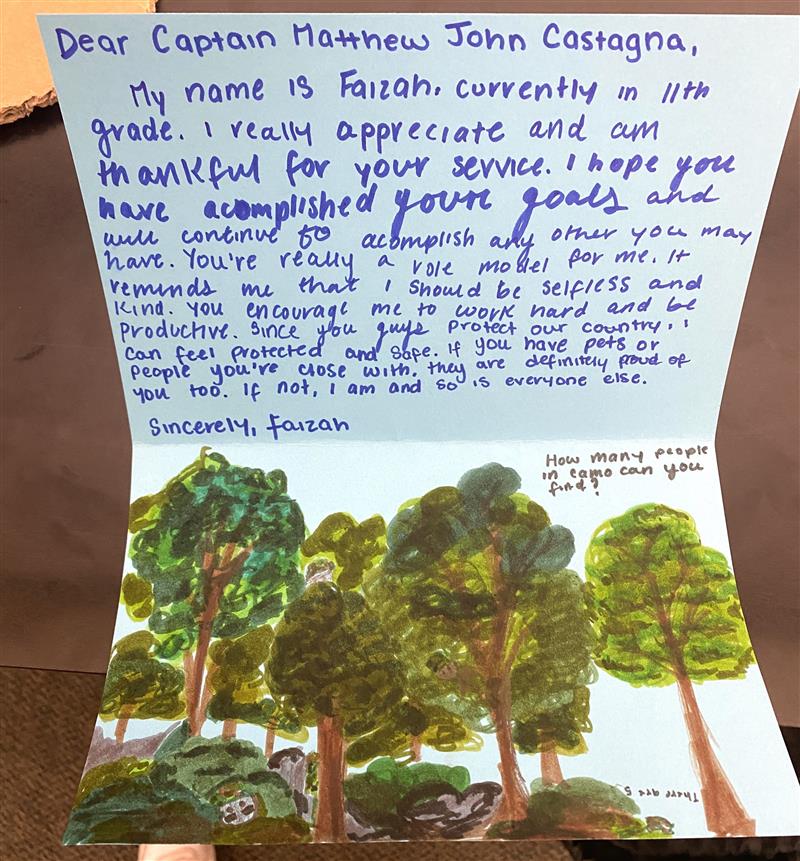 Dear Captain Matthew John Castagna,
My name is Faizah. currently in 11th
grade. I really appreciate and am
thankful for your service. I hope you
have acomplished youre goals and
will continue to acomplish any other you may
have. You're really a role model for me. It
reminds me that I should be selfless and
kind. You encourage me to work hard and be
productive. Since you guys protect our country, i
can feel protected and safe. If you have pets or
people you're close with, they are definitely proud of
you too. If not, I am and so is everyone else.
Sincerely, Faizah
How many people
in camo can you
find?
There are 5